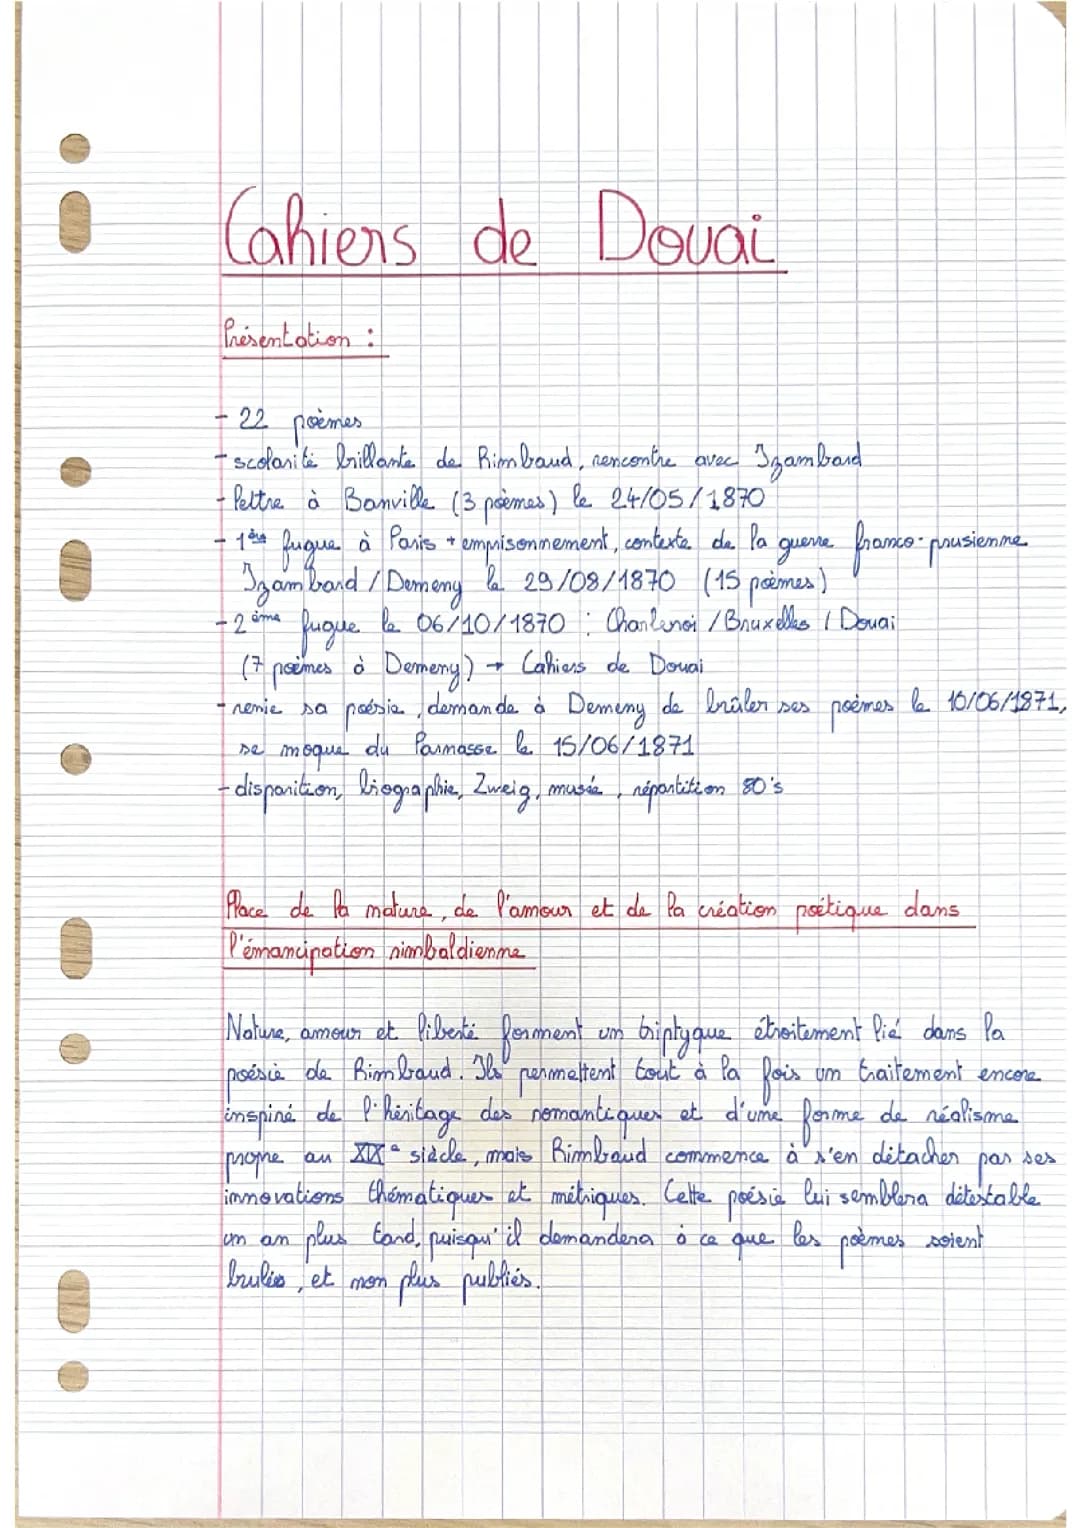 Cahiers de Douai
Présentation :
- 22 poèmes
- scolarité brillante de Rimbaud, rencontre avec Izambard
- lettre à Banville (3 poèmes) le 24/05/1870
- 1ère fugue à Paris + emprisonnement, contexte de la guerre franco-prusienne
Izambard / Demeny le 29/08/1870 (15 poèmes)
- 2ème fugue le 06/10/1870 : Charleroi / Bruxelles / Douai
(7 poèmes à Demeny) → Cahiers de Douai
- renie sa poésie, demande à Demeny de brûler ses poèmes le 10/06/1871,
se moque du Parnasse le 15/06/1871
- disparition, biographie, Zweig, musée, répartition 80's
Place de la nature, de l'amour et de la création poétique dans
l'émancipation rimbaldienne
Nature, amour et liberté forment un triptyque étroitement lié dans la
poésie de Rimbaud. Ils permettent tout à la fois un traitement encore
inspiré de l'héritage des romantiques et d'une forme de réalisme
propre au XIXe siècle, mais Rimbaud commence à s'en détacher par ses
innovations thématiques et métriques. Cette poésie lui semblera détestable
un an plus tard, puisqu'il demandera à ce que les poèmes soient
brulés, et non plus publiés.